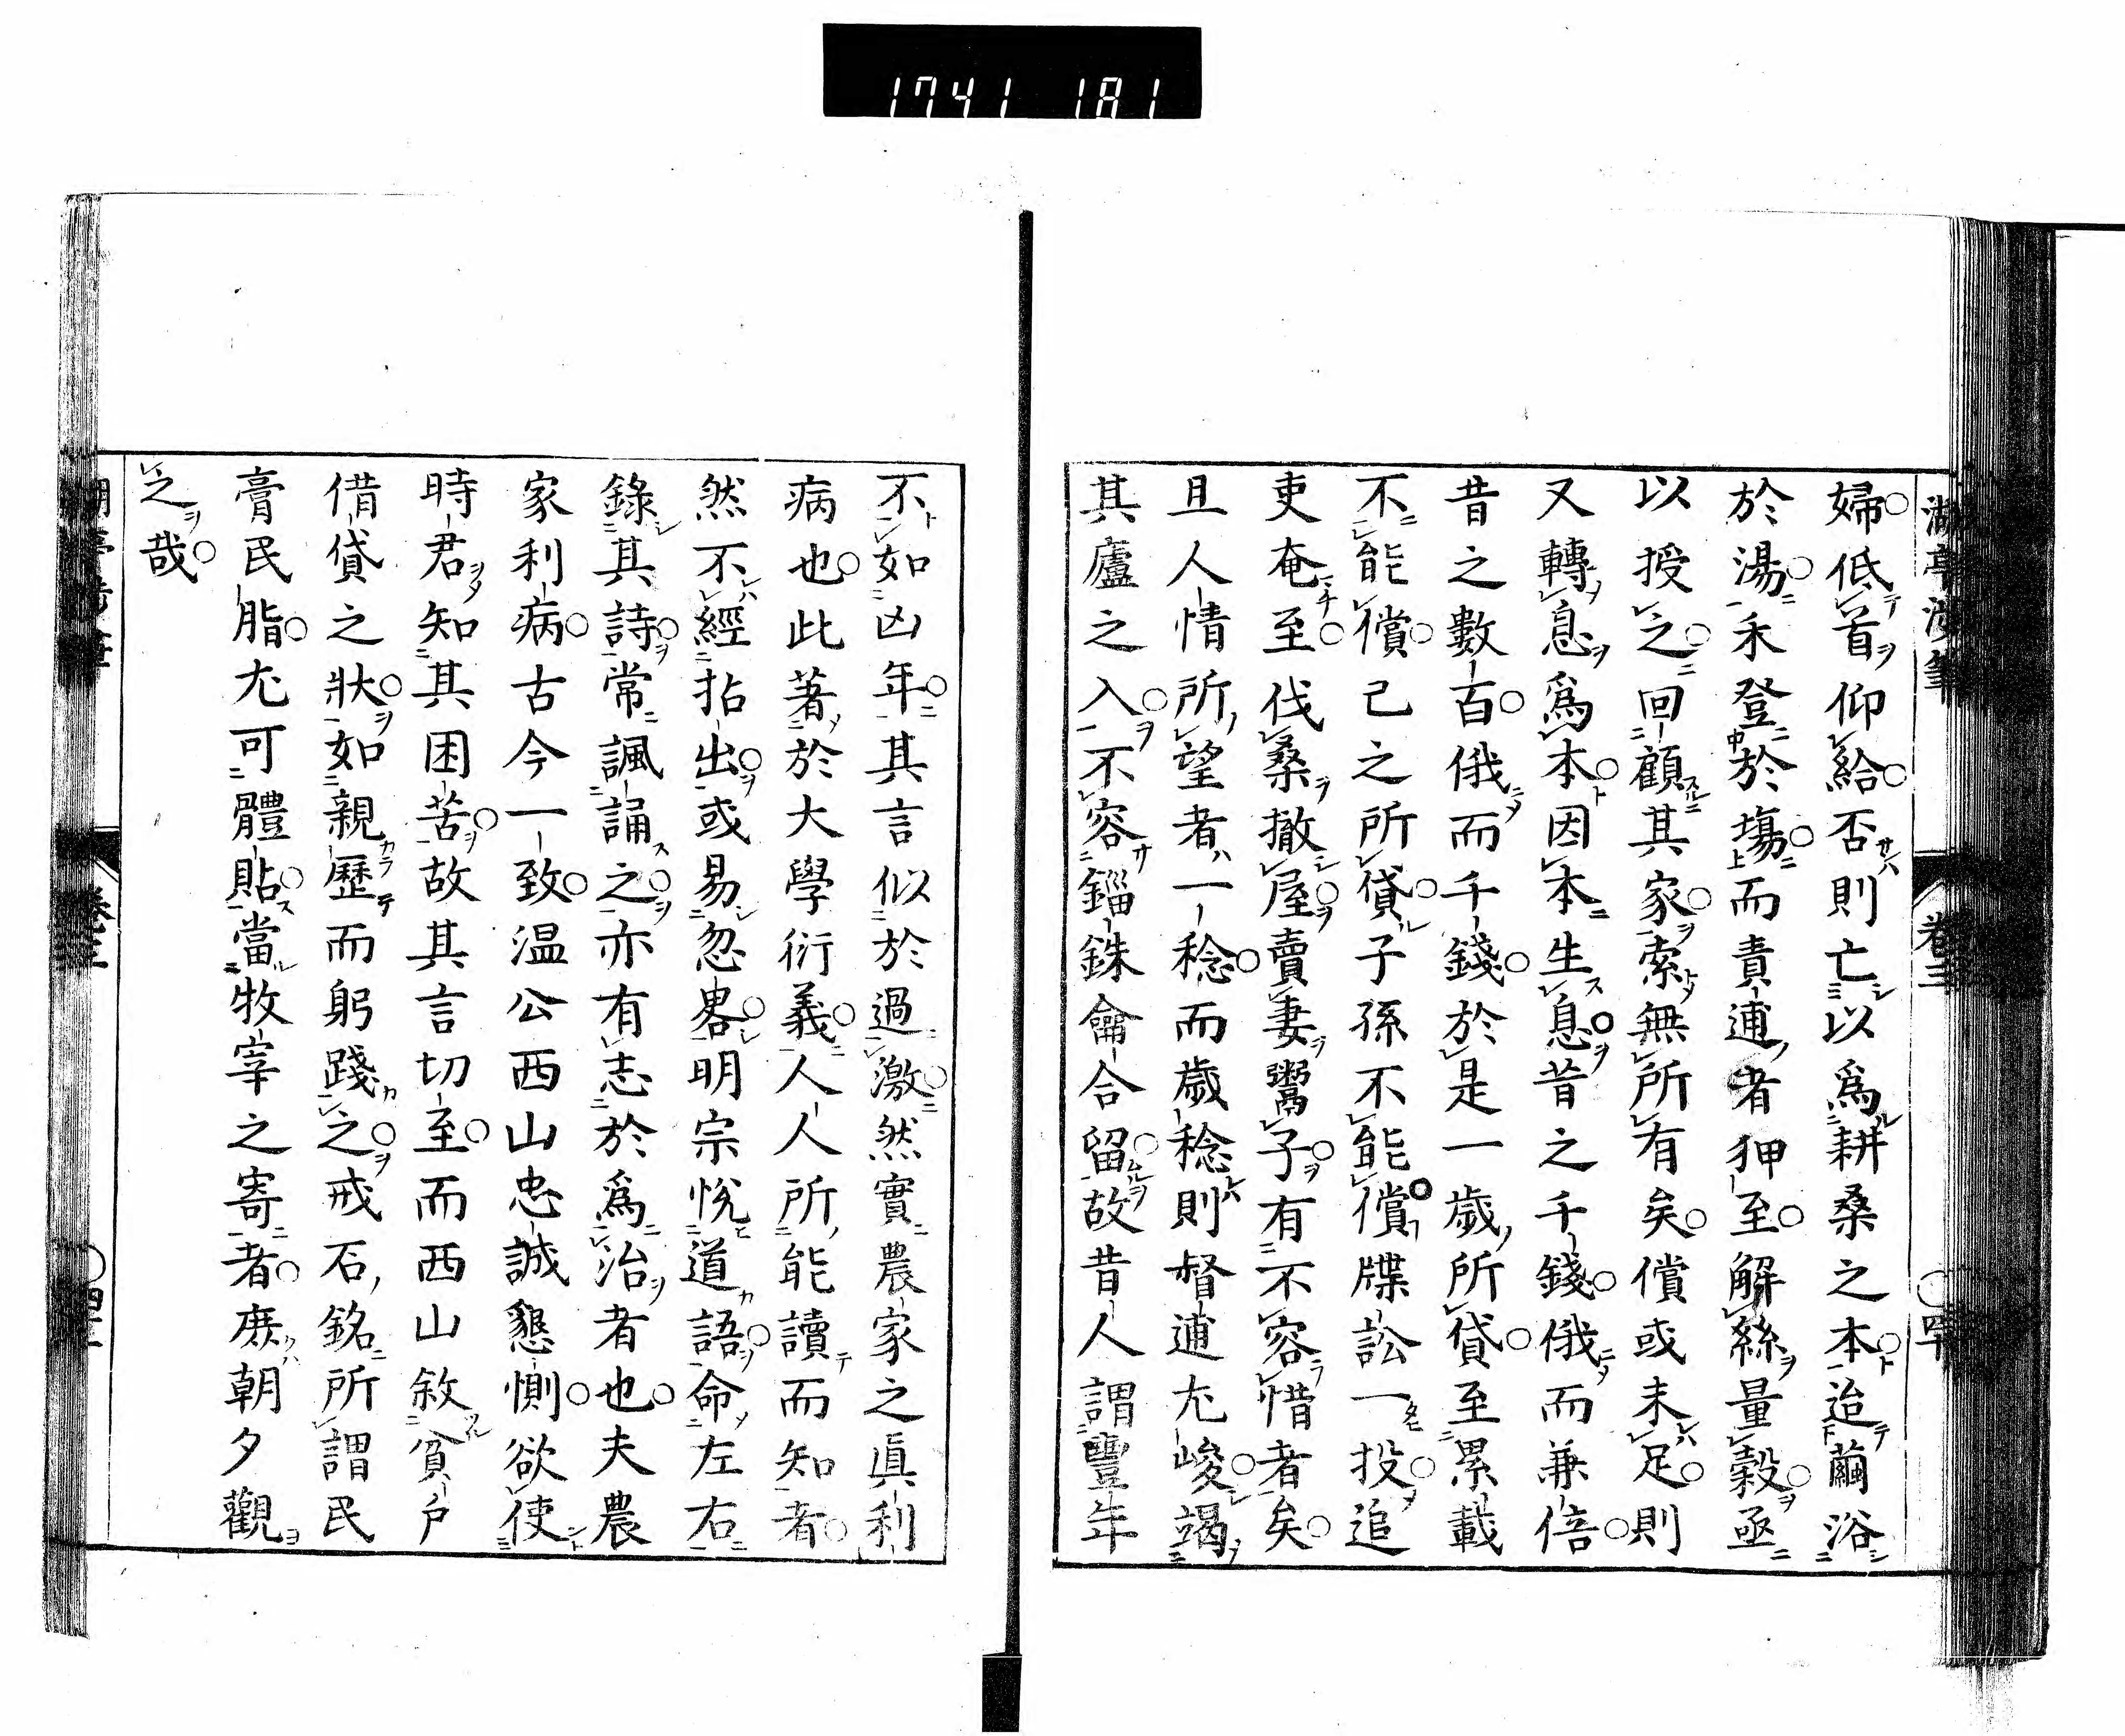 1741 181
湖亭涉筆
卷三
婦低首仰給否則亡以爲耕桑之本迨繭浴
於湯禾登於場而責逋者狎至解絲量穀亟
以授之回顧其家索無所有矣償或未足則
又轉息爲本因本生息昔之千錢俄而兼倍
昔之數百俄而千錢於是一歲所貸至累載
不能償己之所貸子孫不能償牒訟一投追
吏奄至伐桑撤屋賣妻鬻子有不容惜者矣
且人情所望者一稔而歲稔則督逋尤峻竭
其廬之入不容錙銖龠合留故昔人謂豐年
不如凶年其言似於過激然實農家之眞利
病也此著於大學衍義人人所能讀而知者
然不經拈出或易忽畧明宗悅道語命左右
錄其詩常諷誦之亦有志於爲治者也夫農
家利病古今一致温公西山忠誠懇惻欲使
時君知其困苦故其言切至而西山敘貧戶
借貸之狀如親歷而躬踐之戒石銘所謂民
膏民脂尤可體貼當牧宰之寄者庶朝夕觀
之哉
卷三